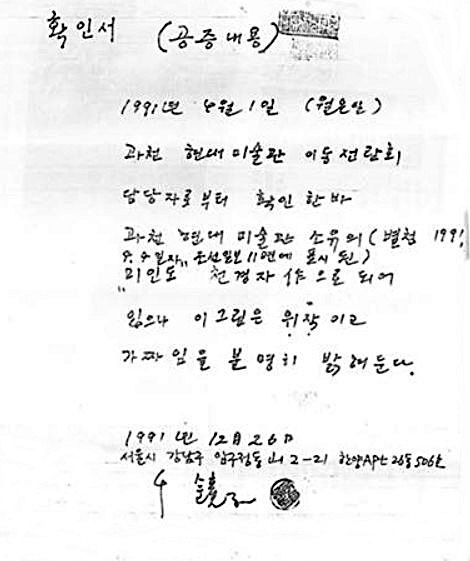 확인서 (공증내용)
1991년 4월 1일 (월요일)
과천 현대미술관 이동전람회
담당자로부터 확인한바
과천 현대미술관 소유의 (별첨 1991.
일자 조선일보 11면에 표시된)
"미인도 천경자 作으로 되어
있으나 이 그림은 위작이고
가짜임을 분명히 밝혀둔다.
1991년 12月 26日
서울시 강남구 압구정동 山 2-21 한양APt 26동 506호